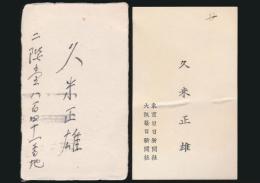 久米正雄
二階堂八百四十一番地
久米正雄
東京日日新聞社
大阪毎日新聞社